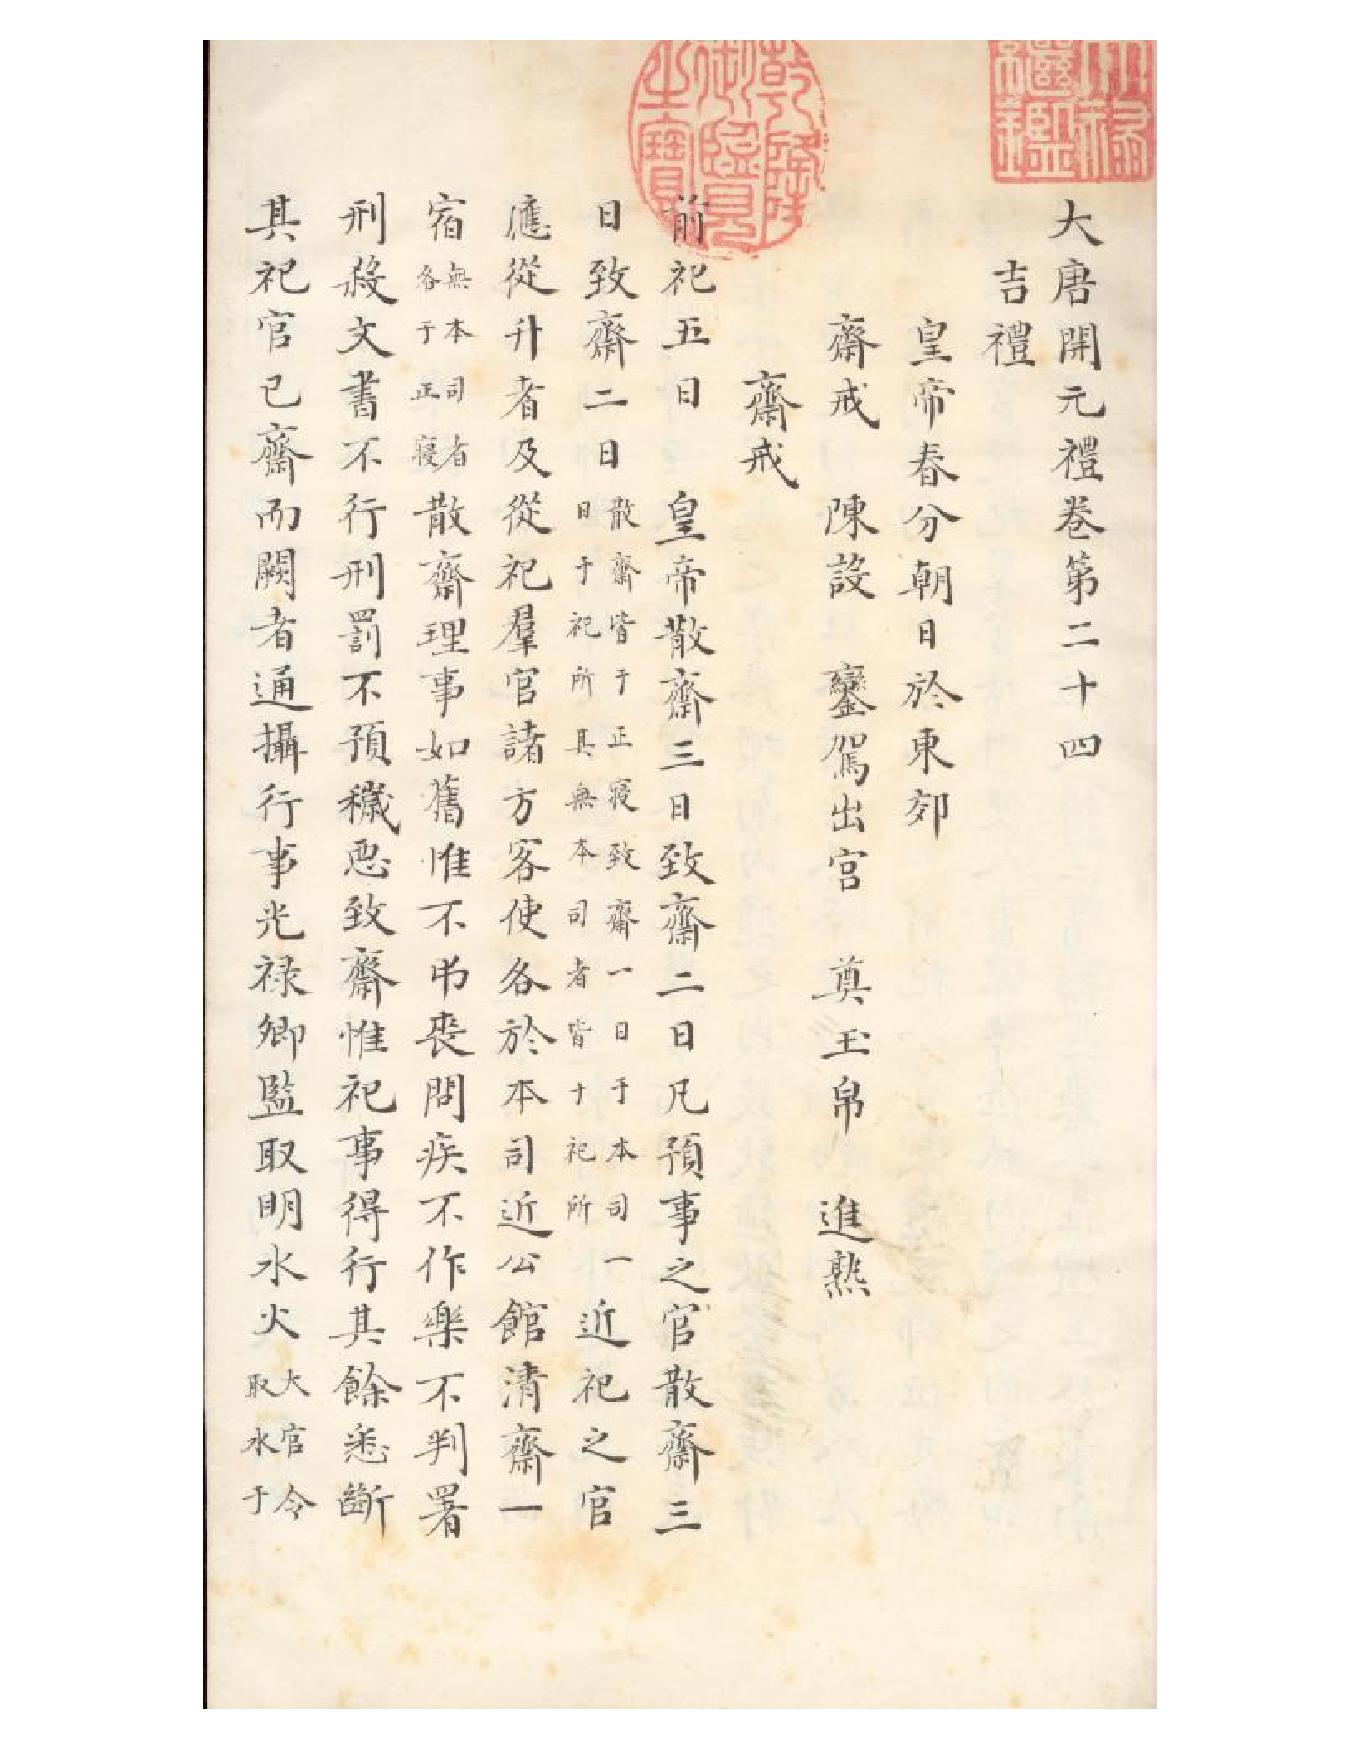 大唐開元禮卷第二十四
吉禮
皇帝春分朝日於東郊
齋戒 陳設 鑾駕出宮 奠玉帛 進熟
齋戒
前祀五日皇帝散齋三日致齋二日凡預事之官散齋三
日致齋二日散齋皆于正寢致齋一日于本司一日于祀所其無本司者皆十祀所近祀之官
應從升者及從祀羣官諸方客使各於本司近公館清齋一
宿無本司者各于正寢散齋理事如舊惟不弔喪問疾不作樂不判署
刑殺文書不行刑罰不預穢惡致齋惟祀事得行其餘悉斷
其祀官已齋而闕者通攝行事光祿卿監取明水火大官令取水于
乾隆御覽之寶
天祿繼鑑